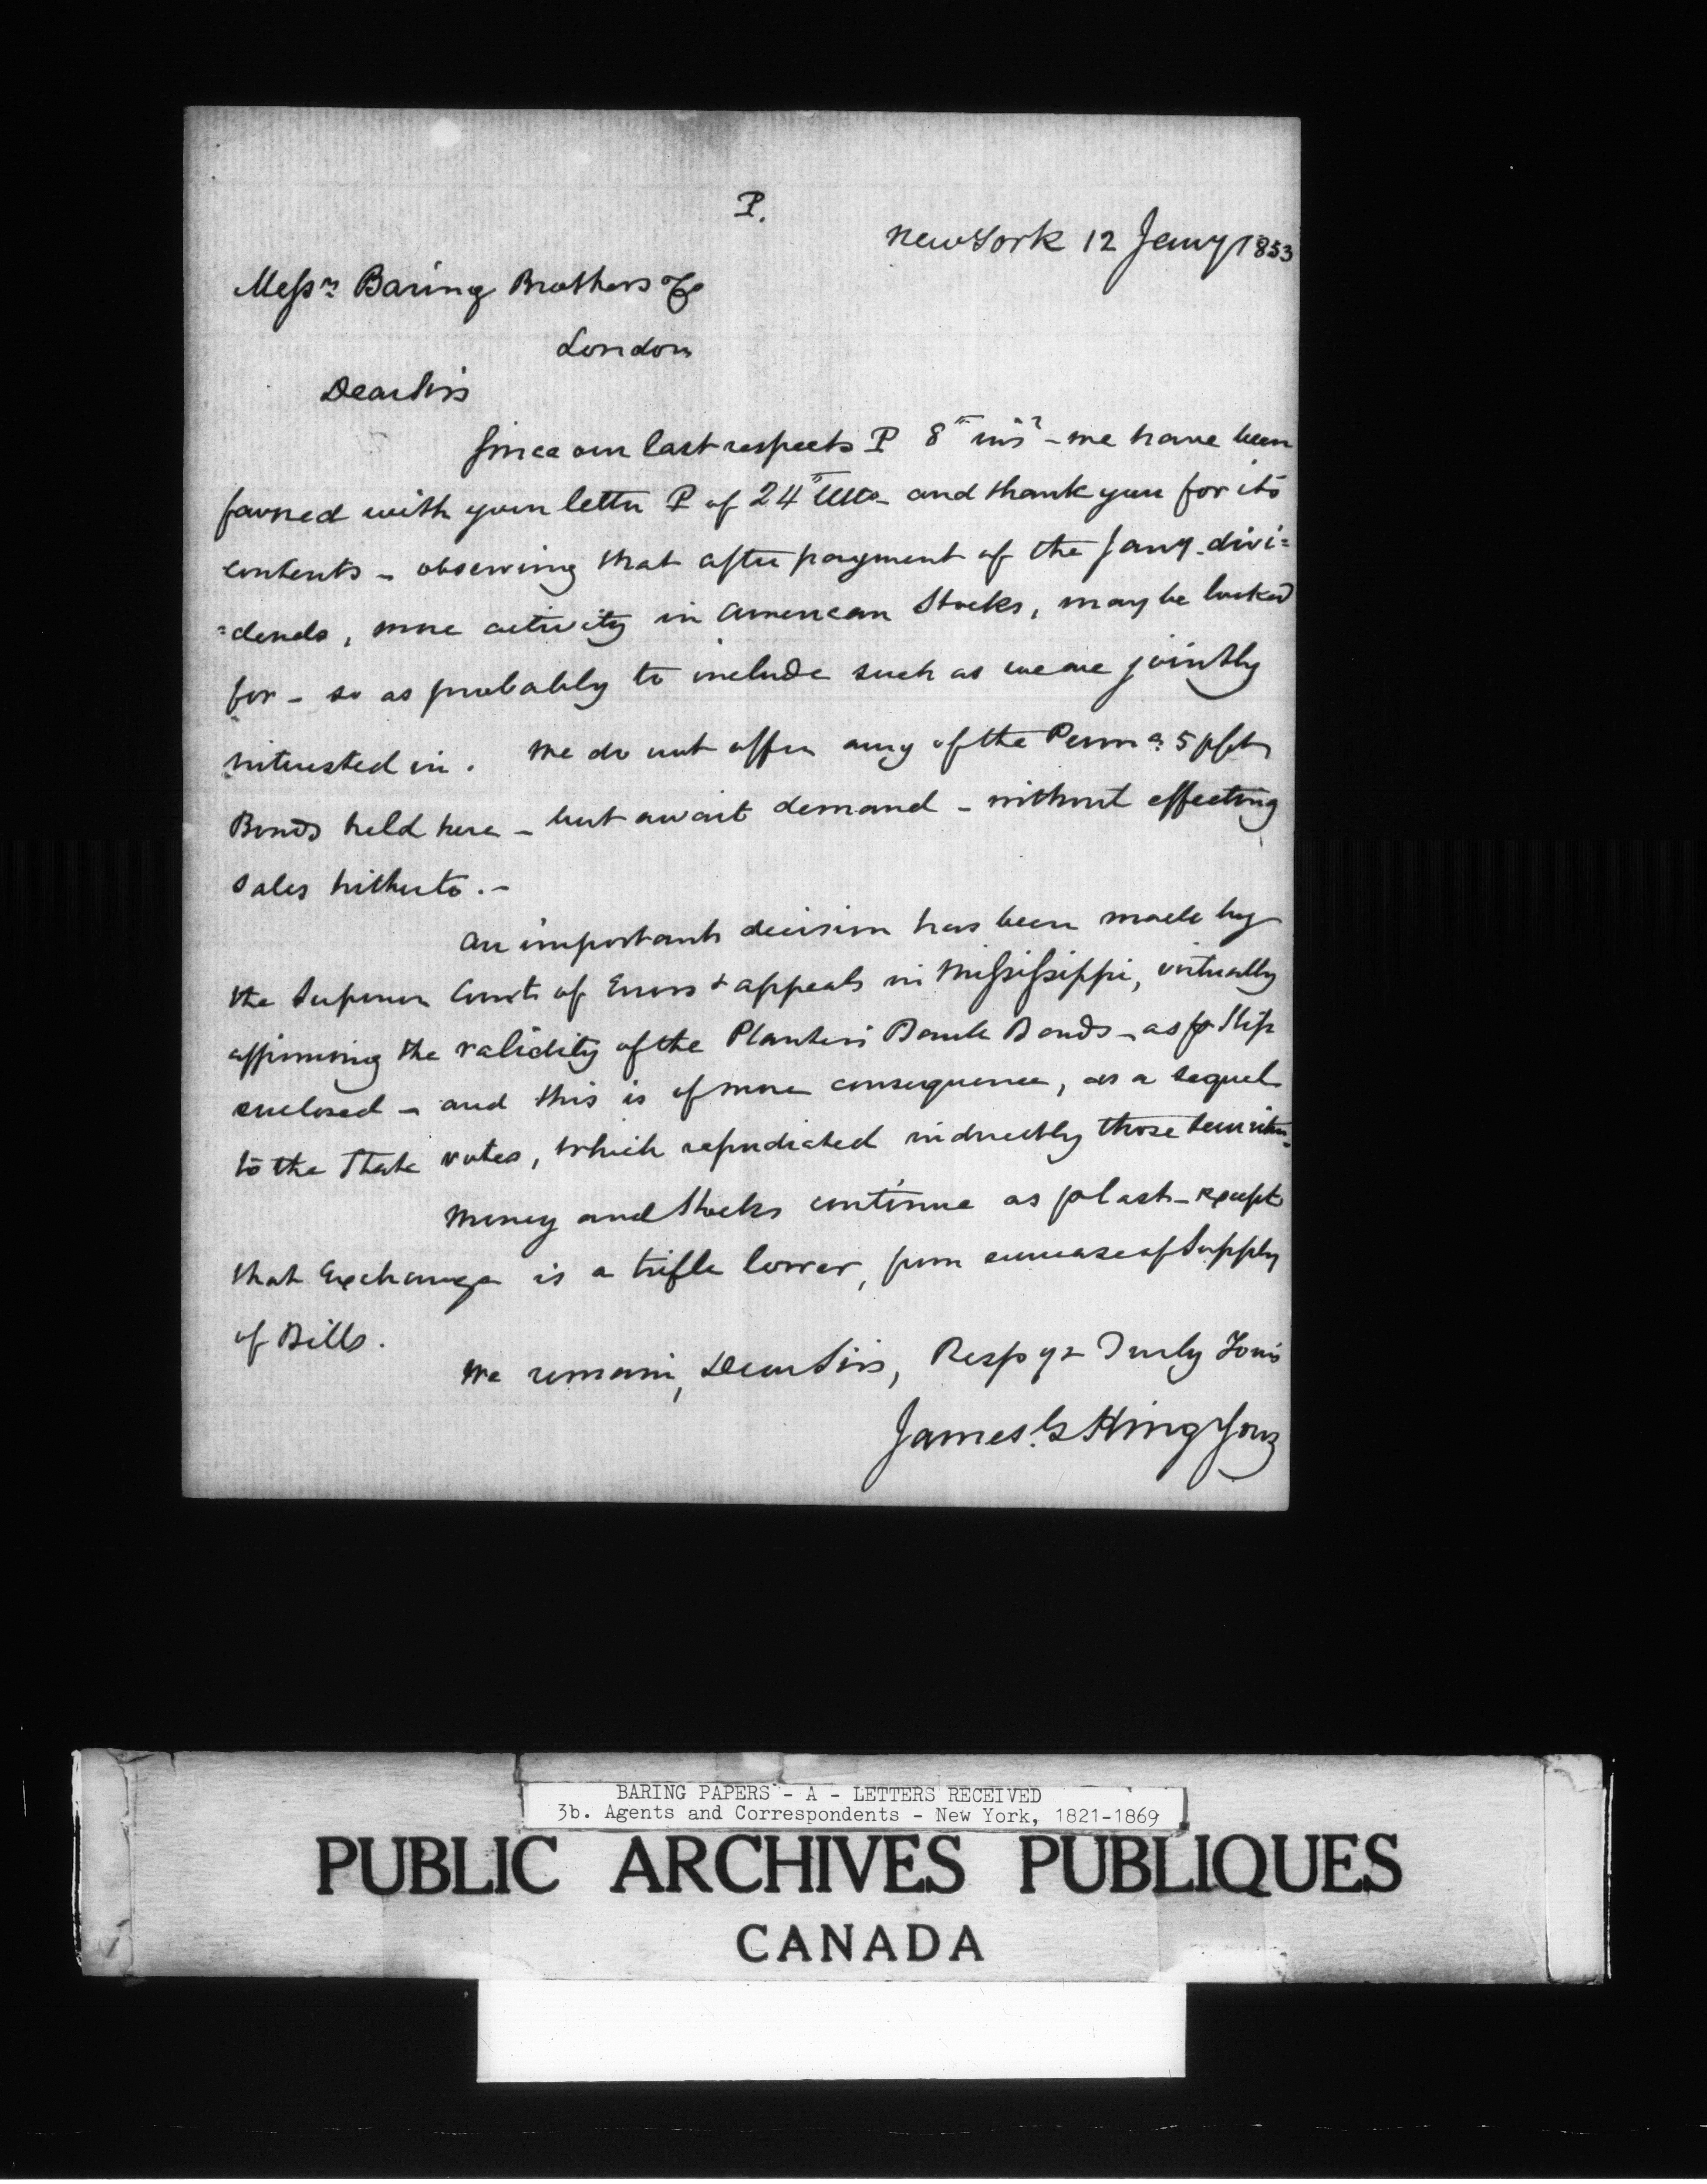 P.
New York 12 Jany 1853
Messrs Baring Brothers & Co
London
Dear Sirs
Since our last respects P 8th inst - we have been
favored with your letter P of 24th Ulto - and thank you for its
contents - observing that after payment of the Jany. divi=
=dends, more activity in American Stocks, may be looked
for - so as probably to include such as we are jointly
interested in. We do not offer any of the Penna 5 pct
Bonds held here - but await demand - without effecting
sales hitherto. -
An important decision has been made by
the Superior Court of Errors & appeals in Mississippi, virtually
affirming the validity of the Planters Bank Bonds - as p Slip
enclosed - and this is of more consequence, as a sequel
to the State votes, which repudiated indirectly those securities
Money and Stocks continue as p last - except
that Exchange is a trifle lower, from increase of Supply
of Bills.
We remain, Dear Sirs, Respy & Truly Yours
James G King & Sons
BARING PAPERS - A - LETTERS RECEIVED
3b. Agents and Correspondents - New York, 1821-1869
PUBLIC ARCHIVES PUBLIQUES
CANADA